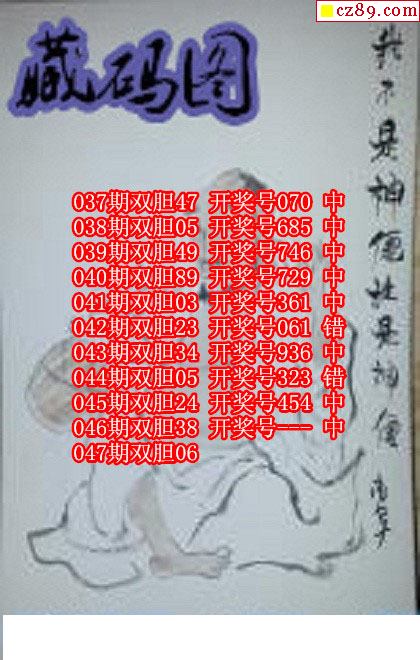 cz89.com
藏码图
我不是神僊杜是神僊
037期双胆47 开奖号070 中
038期双胆05 开奖号685 中
039期双胆49 开奖号746 中
040期双胆89 开奖号729 中
041期双胆03 开奖号361 中
042期双胆23 开奖号061 错
043期双胆34 开奖号936 中
044期双胆05 开奖号323 错
045期双胆24 开奖号454 中
046期双胆38 开奖号--- 中
047期双胆06